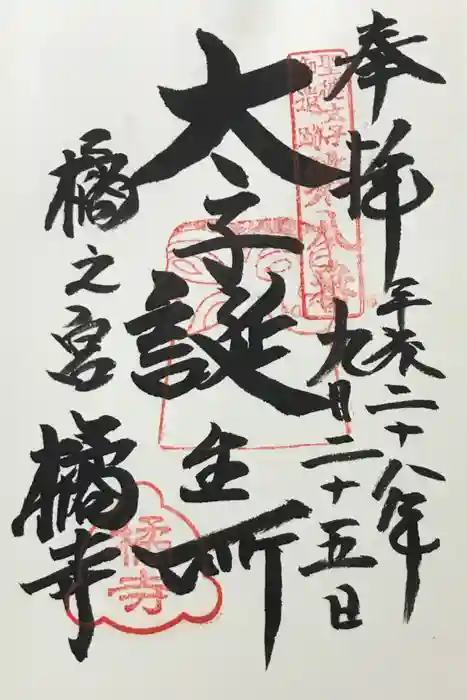 奉拝
平成二十八年
九月二十五日
太子誕生所
橘之宮
橘寺
橘寺